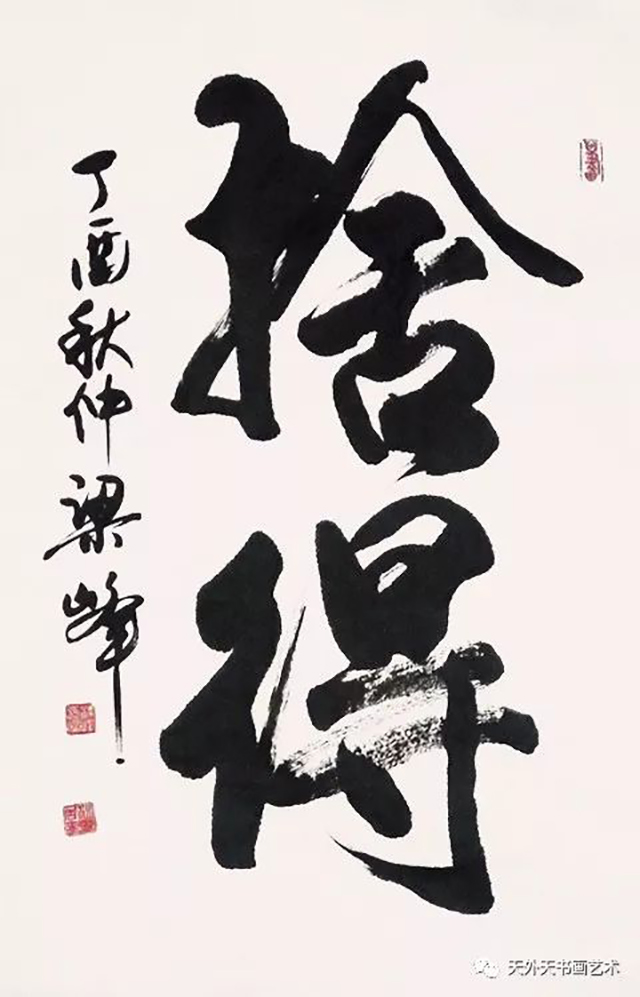 捨得
丁酉秋仲梁峰
天外天书画艺术